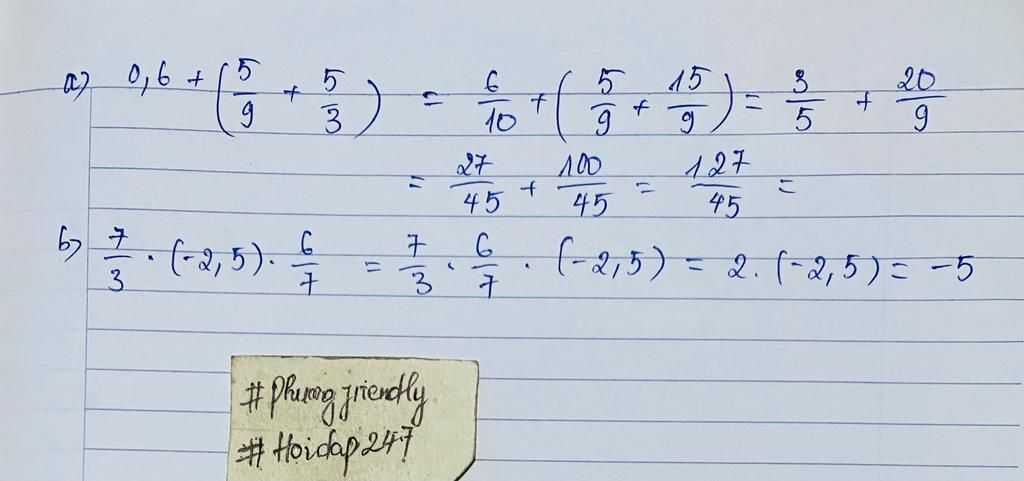 a) 0,6 + (5/9 + 5/3) = 6/10 + (5/9 + 15/9) = 3/5 + 20/9
= 27/45 + 100/45 = 127/45 =
b) 7/3 . (-2,5) . 6/7 = 7/3 . 6/7 . (-2,5) = 2. (-2,5) = -5
# Phuongfriendly
# Hoidap247